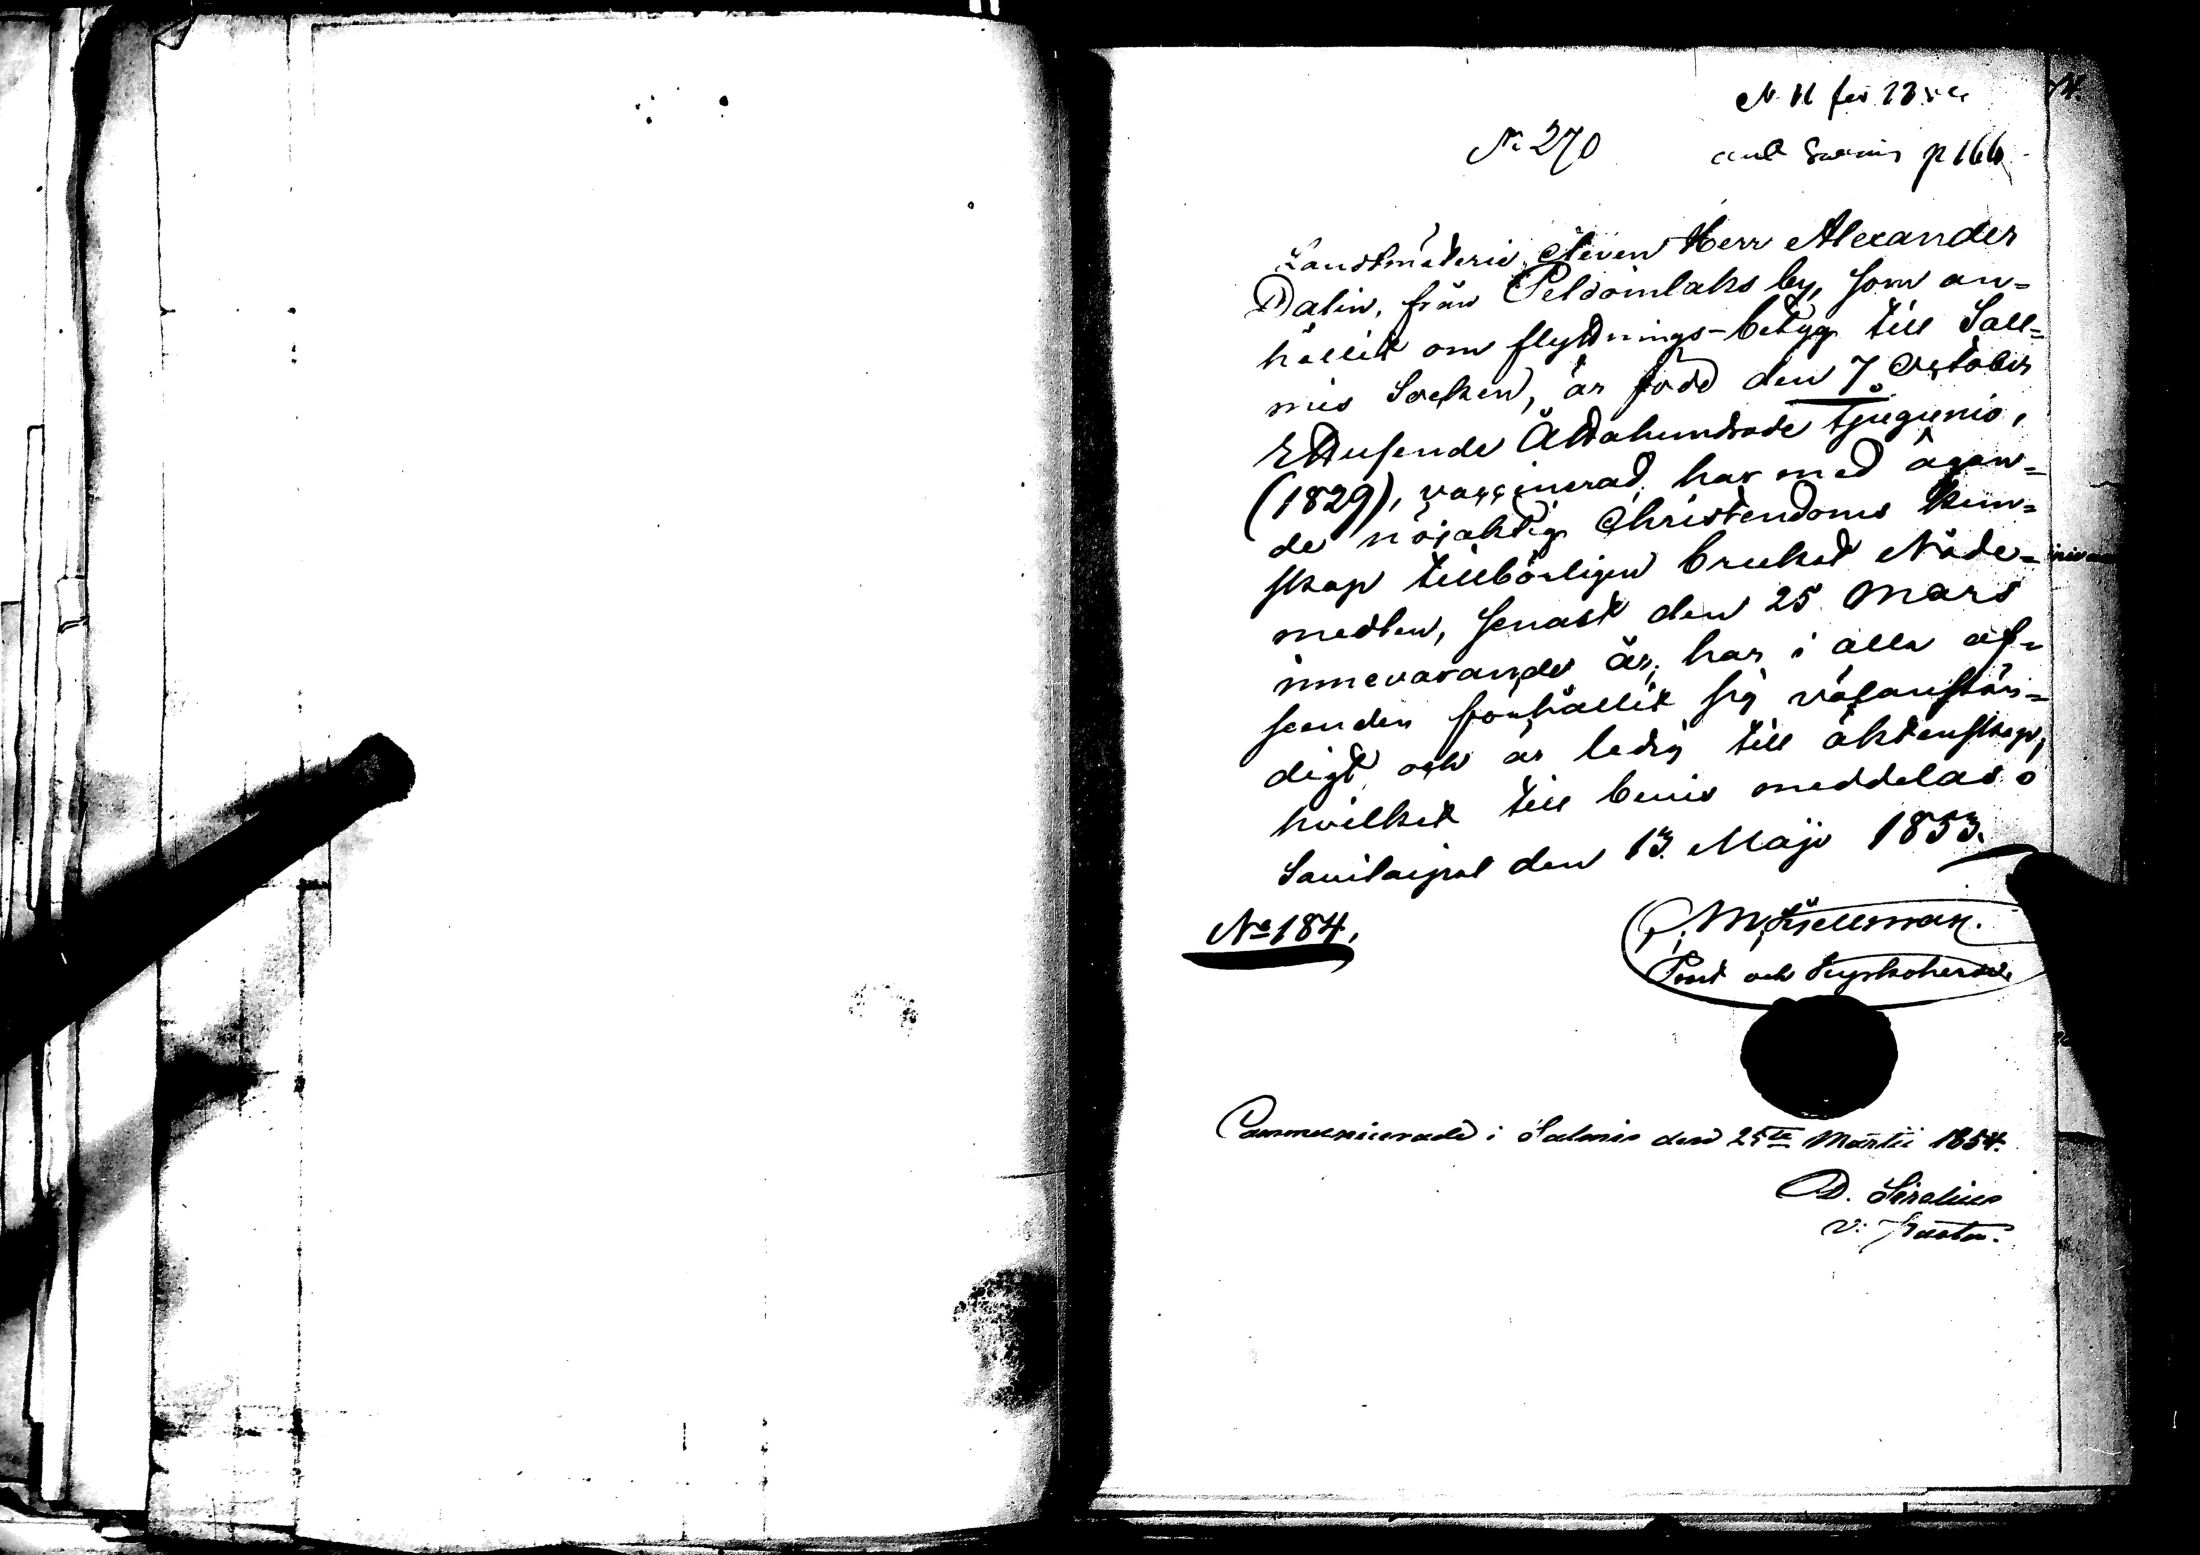 N 11 för 1854
N: 270
p 166
Landtmäteri Eleven Herr Alexander
Dalin, från Peldoinlaks by, som an-
hållit om flyttnings-betyg till Sall-
mis Socken, är född den 7. October
Ettusende Åttahundrade tjugunio,
(1829), vaccinerad, har med ägan-
de nöjaktig Christendoms kun-
skap tillbörligen brukat Nåde-
medlen, senast den 25 Mars
innevarande år, har i alla af-
seenden förhållit sig väl anstän-
digt och är ledig till äktenskap,
hvilket till bevis meddelas
Savitaipal den 13. Maji 1853.
No 184.
M. Kjellman.
Prost och Kyrkoherde
Communicerade i Salmis den 25te Martii 1854.
D. Sirelius
v: Pastor.